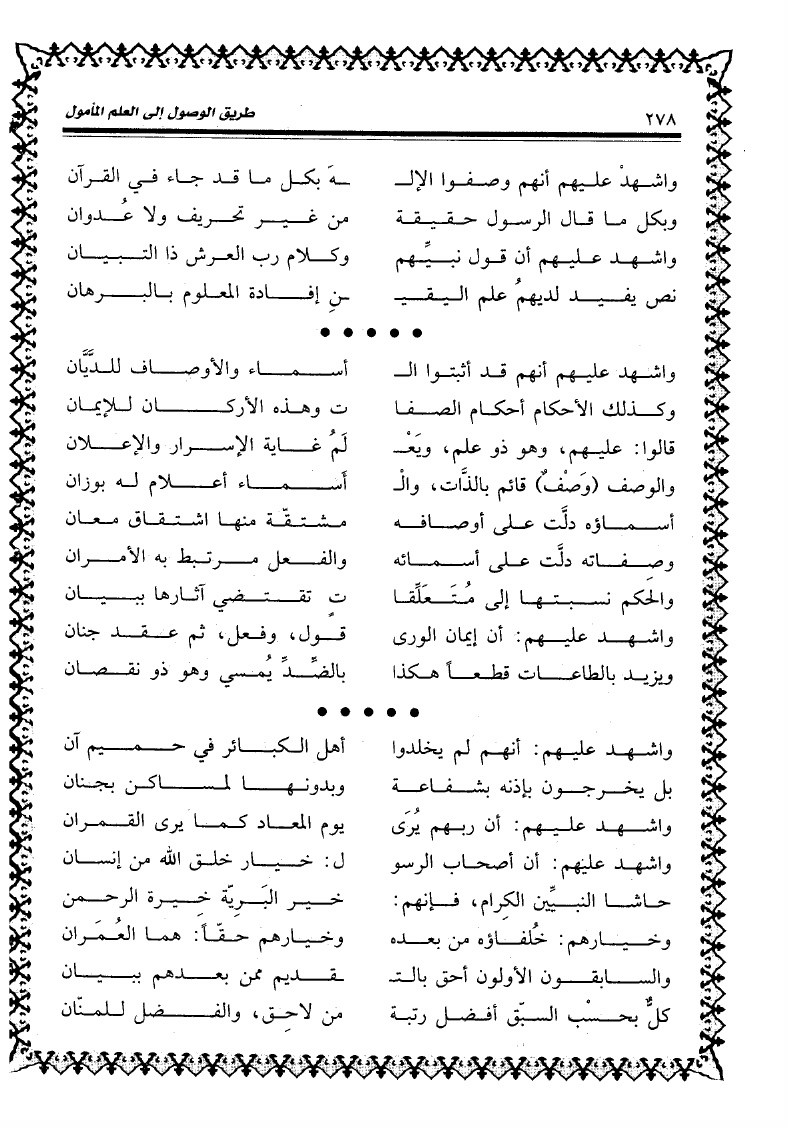 ٢٧٨ طريق الوصول إلى العلم المأمول
واشهدْ عليهم أنهم وصفوا الإلـ ـهَ بكل ما قد جاء في القرآن
وبكل ما قال الرسول حقيقة من غير تحريف ولا عُدوان
واشهد عليهم أن قول نبيِّهم وكلام رب العرش ذا التبيان
نص يفيد لديهمُ علم اليقيـ ـنِ إفادة المعلوم بالبرهان
● ● ● ● ●
واشهد عليهم أنهم قد أثبتوا الـ أسماء والأوصاف للديَّان
وكذلك الأحكام أحكام الصفا ت وهذه الأركان للإيمان
قالوا: عليهم، وهو ذو علم، ويَعْـ لَمُ غاية الإسرار والإعلان
والوصف (وَصْفٌ) قائم بالذَّات، والْـ أَسماء أعلام له بوزان
أسماؤه دلَّت على أوصافه مشتقّة منها اشتقاق معان
وصِفاته دلَّت على أسمائه والفعل مرتبط به الأمران
والحكم نسبتها إلى مُتَعَلِّقا تٍ تقتضي آثارها ببيان
واشهد عليهم: أن إيمان الورى قول، وفعل، ثم عقد جنان
ويزيد بالطاعات قطعاً هكذا بالضِّدِّ يُمسي وهو ذو نقصان
● ● ● ● ●
واشهد عليهم: أنهم لم يخلدوا أهل الكبائر في حميم آن
بل يخرجون بإذنه بشفاعة وبدونها لمساكن بجنان
واشهد عليهم: أن ربهم يُرَى يوم المعاد كما يرى القمران
واشهد عليهم: أن أصحاب الرسو ل: خيار خلق الله من إنسان
حاشا النبيِّين الكِرام، فإنهم: خير البَرِيّة خيرة الرحمن
وخيارهم: خُلفاؤه من بعده وخيارهم حقّاً: هما العُمَران
والسابقون الأولون أحق بالتـ ـقديم ممن بعدهم ببيان
كلٌّ بحسْب السبّق أفضل رتبة من لاحِق، والفضل للمنّان